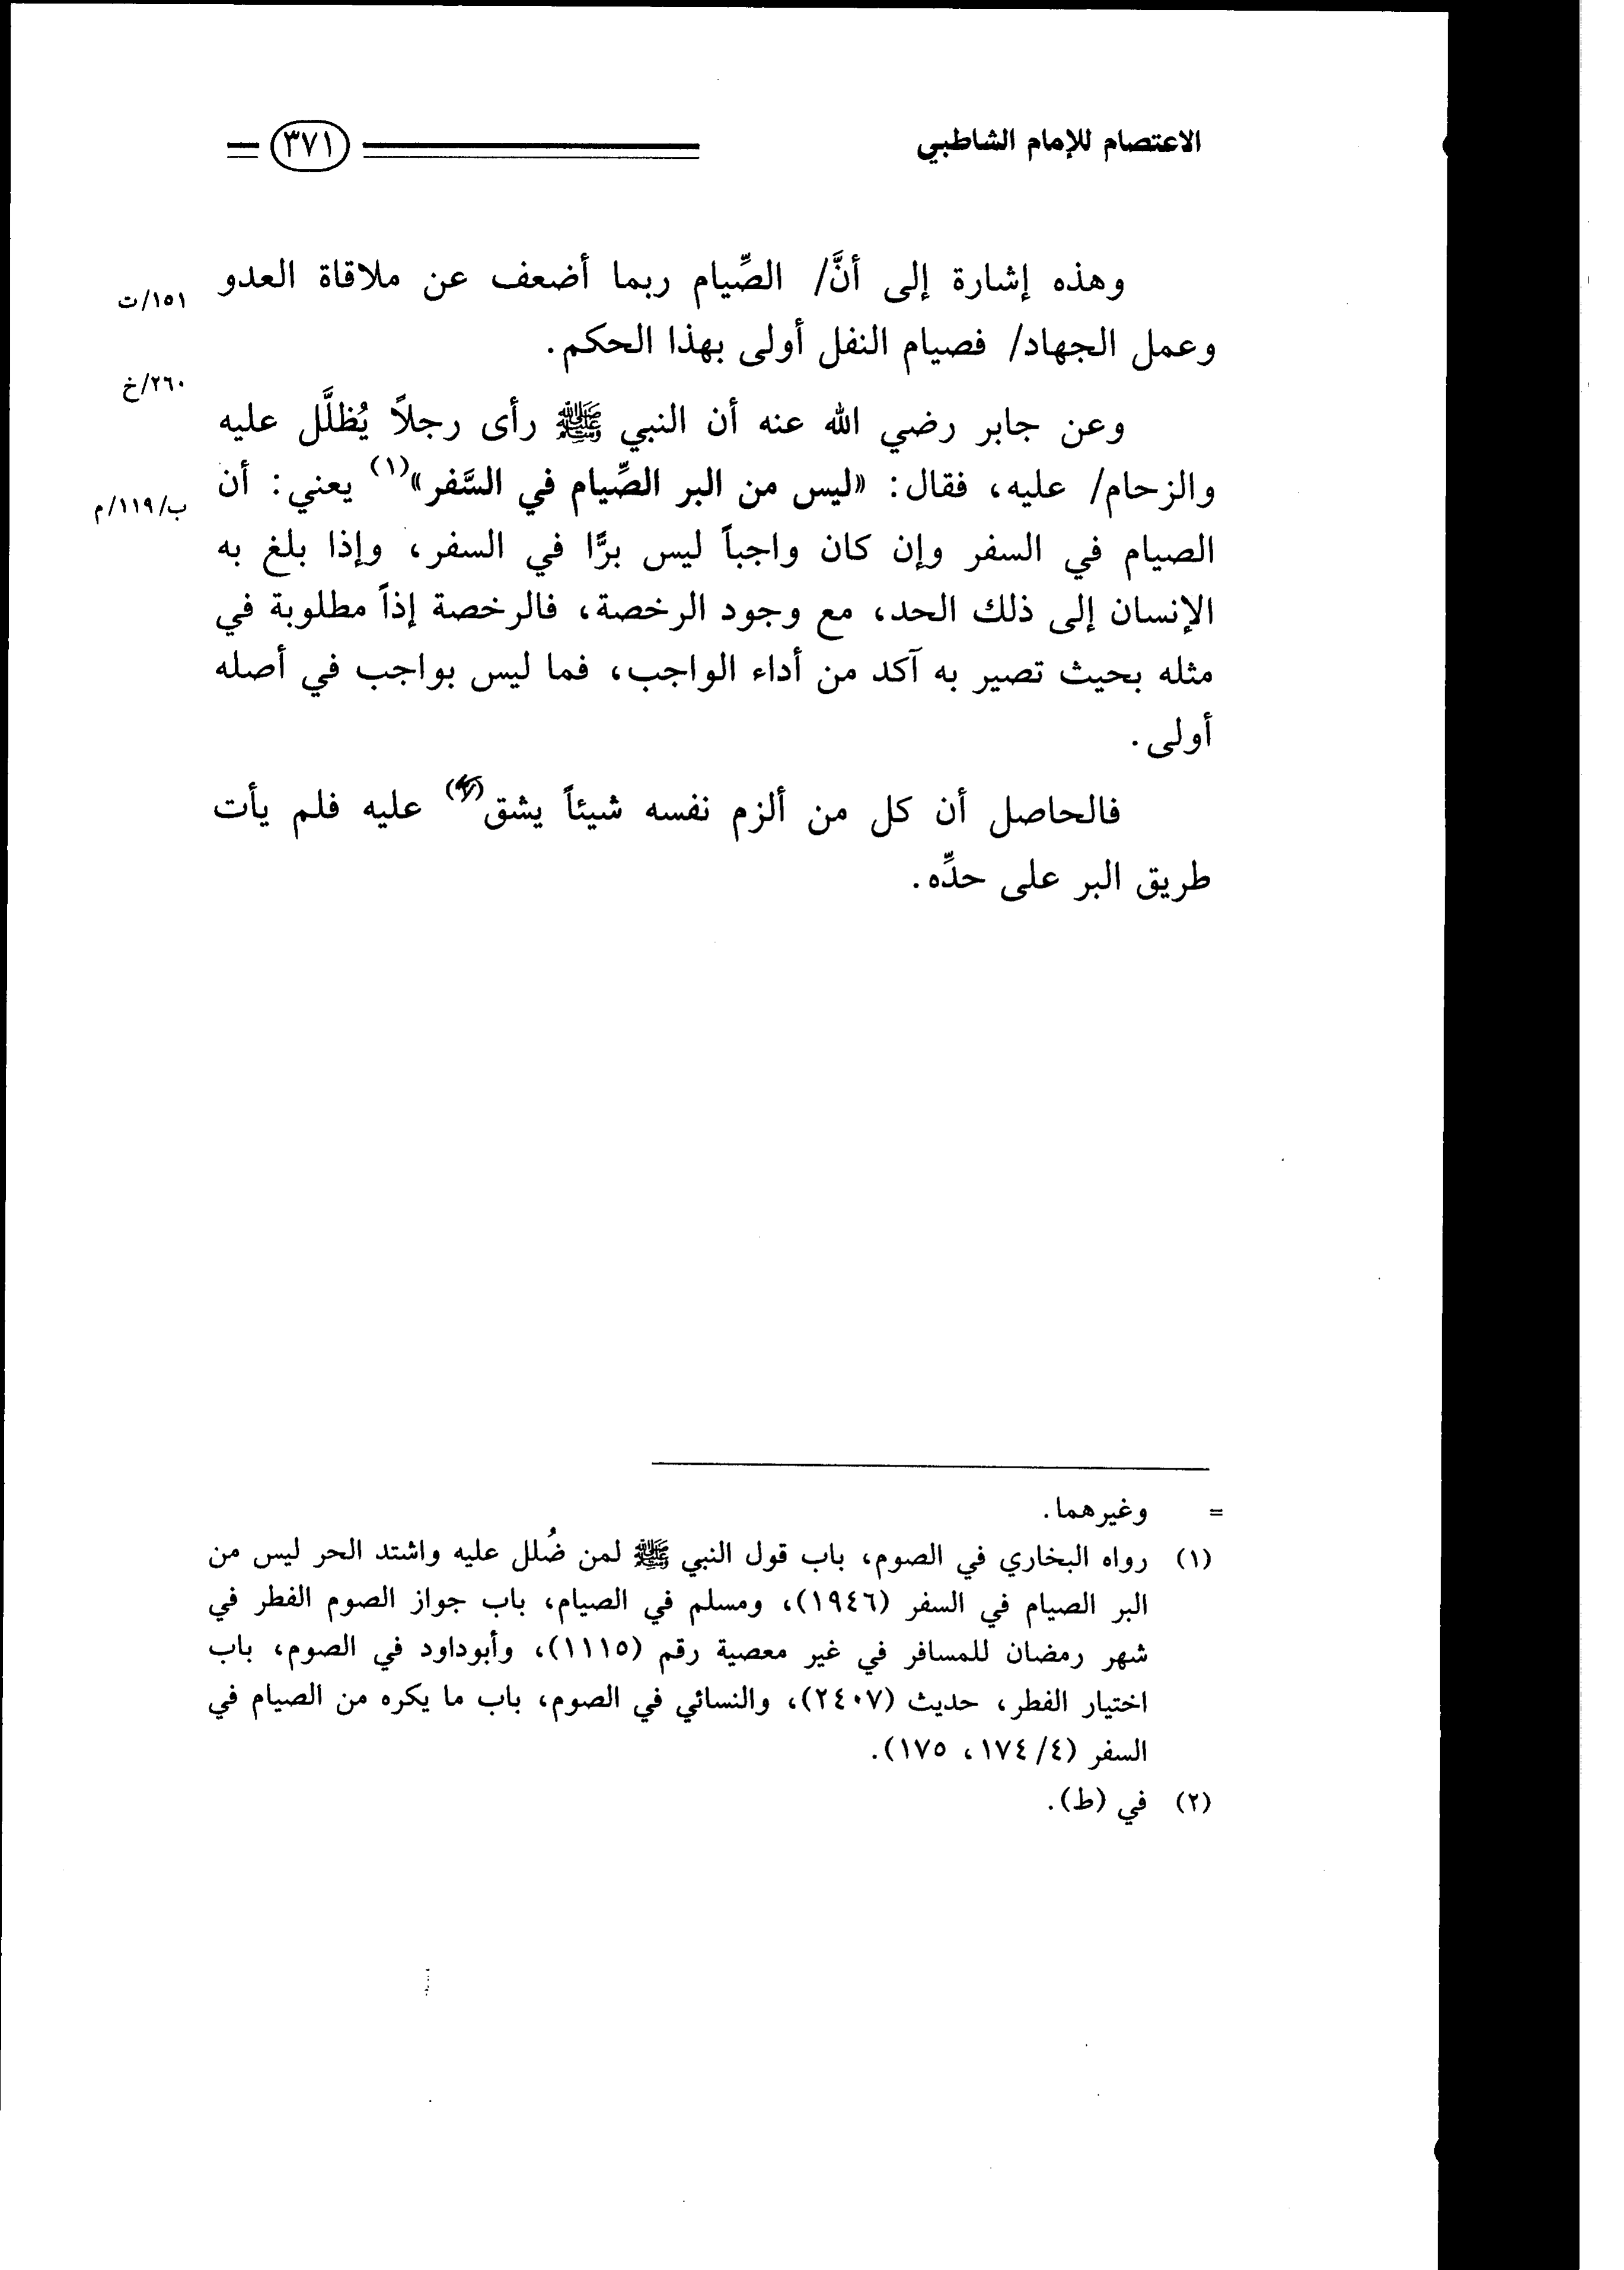 الاعتصام للإمام الشاطبي ٣٧١
وهذه إشارة إلى أنَّ/ الصِّيام ربما أضعف عن ملاقاة العدو
١٥١/ت
وعمل الجهاد/ فصيام النفل أولى بهذا الحكم.
٢٦٠/خ
وعن جابر رضي الله عنه أن النبي ﷺ رأى رجلاً يُظلَّل عليه
والزحام/ عليه، فقال: «ليس من البر الصِّيام في السَّفر»(١) يعني: أن
ب/١١٩/م
الصيام في السفر وإن كان واجباً ليس برًّا في السفر، وإذا بلغ به
الإنسان إلى ذلك الحد، مع وجود الرخصة، فالرخصة إذاً مطلوبة في
مثله بحيث تصير به آكد من أداء الواجب، فما ليس بواجب في أصله
أولى.
فالحاصل أن كل من ألزم نفسه شيئاً يشق(٢) عليه فلم يأت
طريق البر على حدِّه.
= وغيرهما.
(١) رواه البخاري في الصوم، باب قول النبي ﷺ لمن ضُلل عليه واشتد الحر ليس من
البر الصيام في السفر (١٩٤٦)، ومسلم في الصيام، باب جواز الصوم الفطر في
شهر رمضان للمسافر في غير معصية رقم (١١١٥)، وأبوداود في الصوم، باب
اختيار الفطر، حديث (٢٤٠٧)، والنسائي في الصوم، باب ما يكره من الصيام في
السفر (٤/ ١٧٤، ١٧٥).
(٢) في (ط).